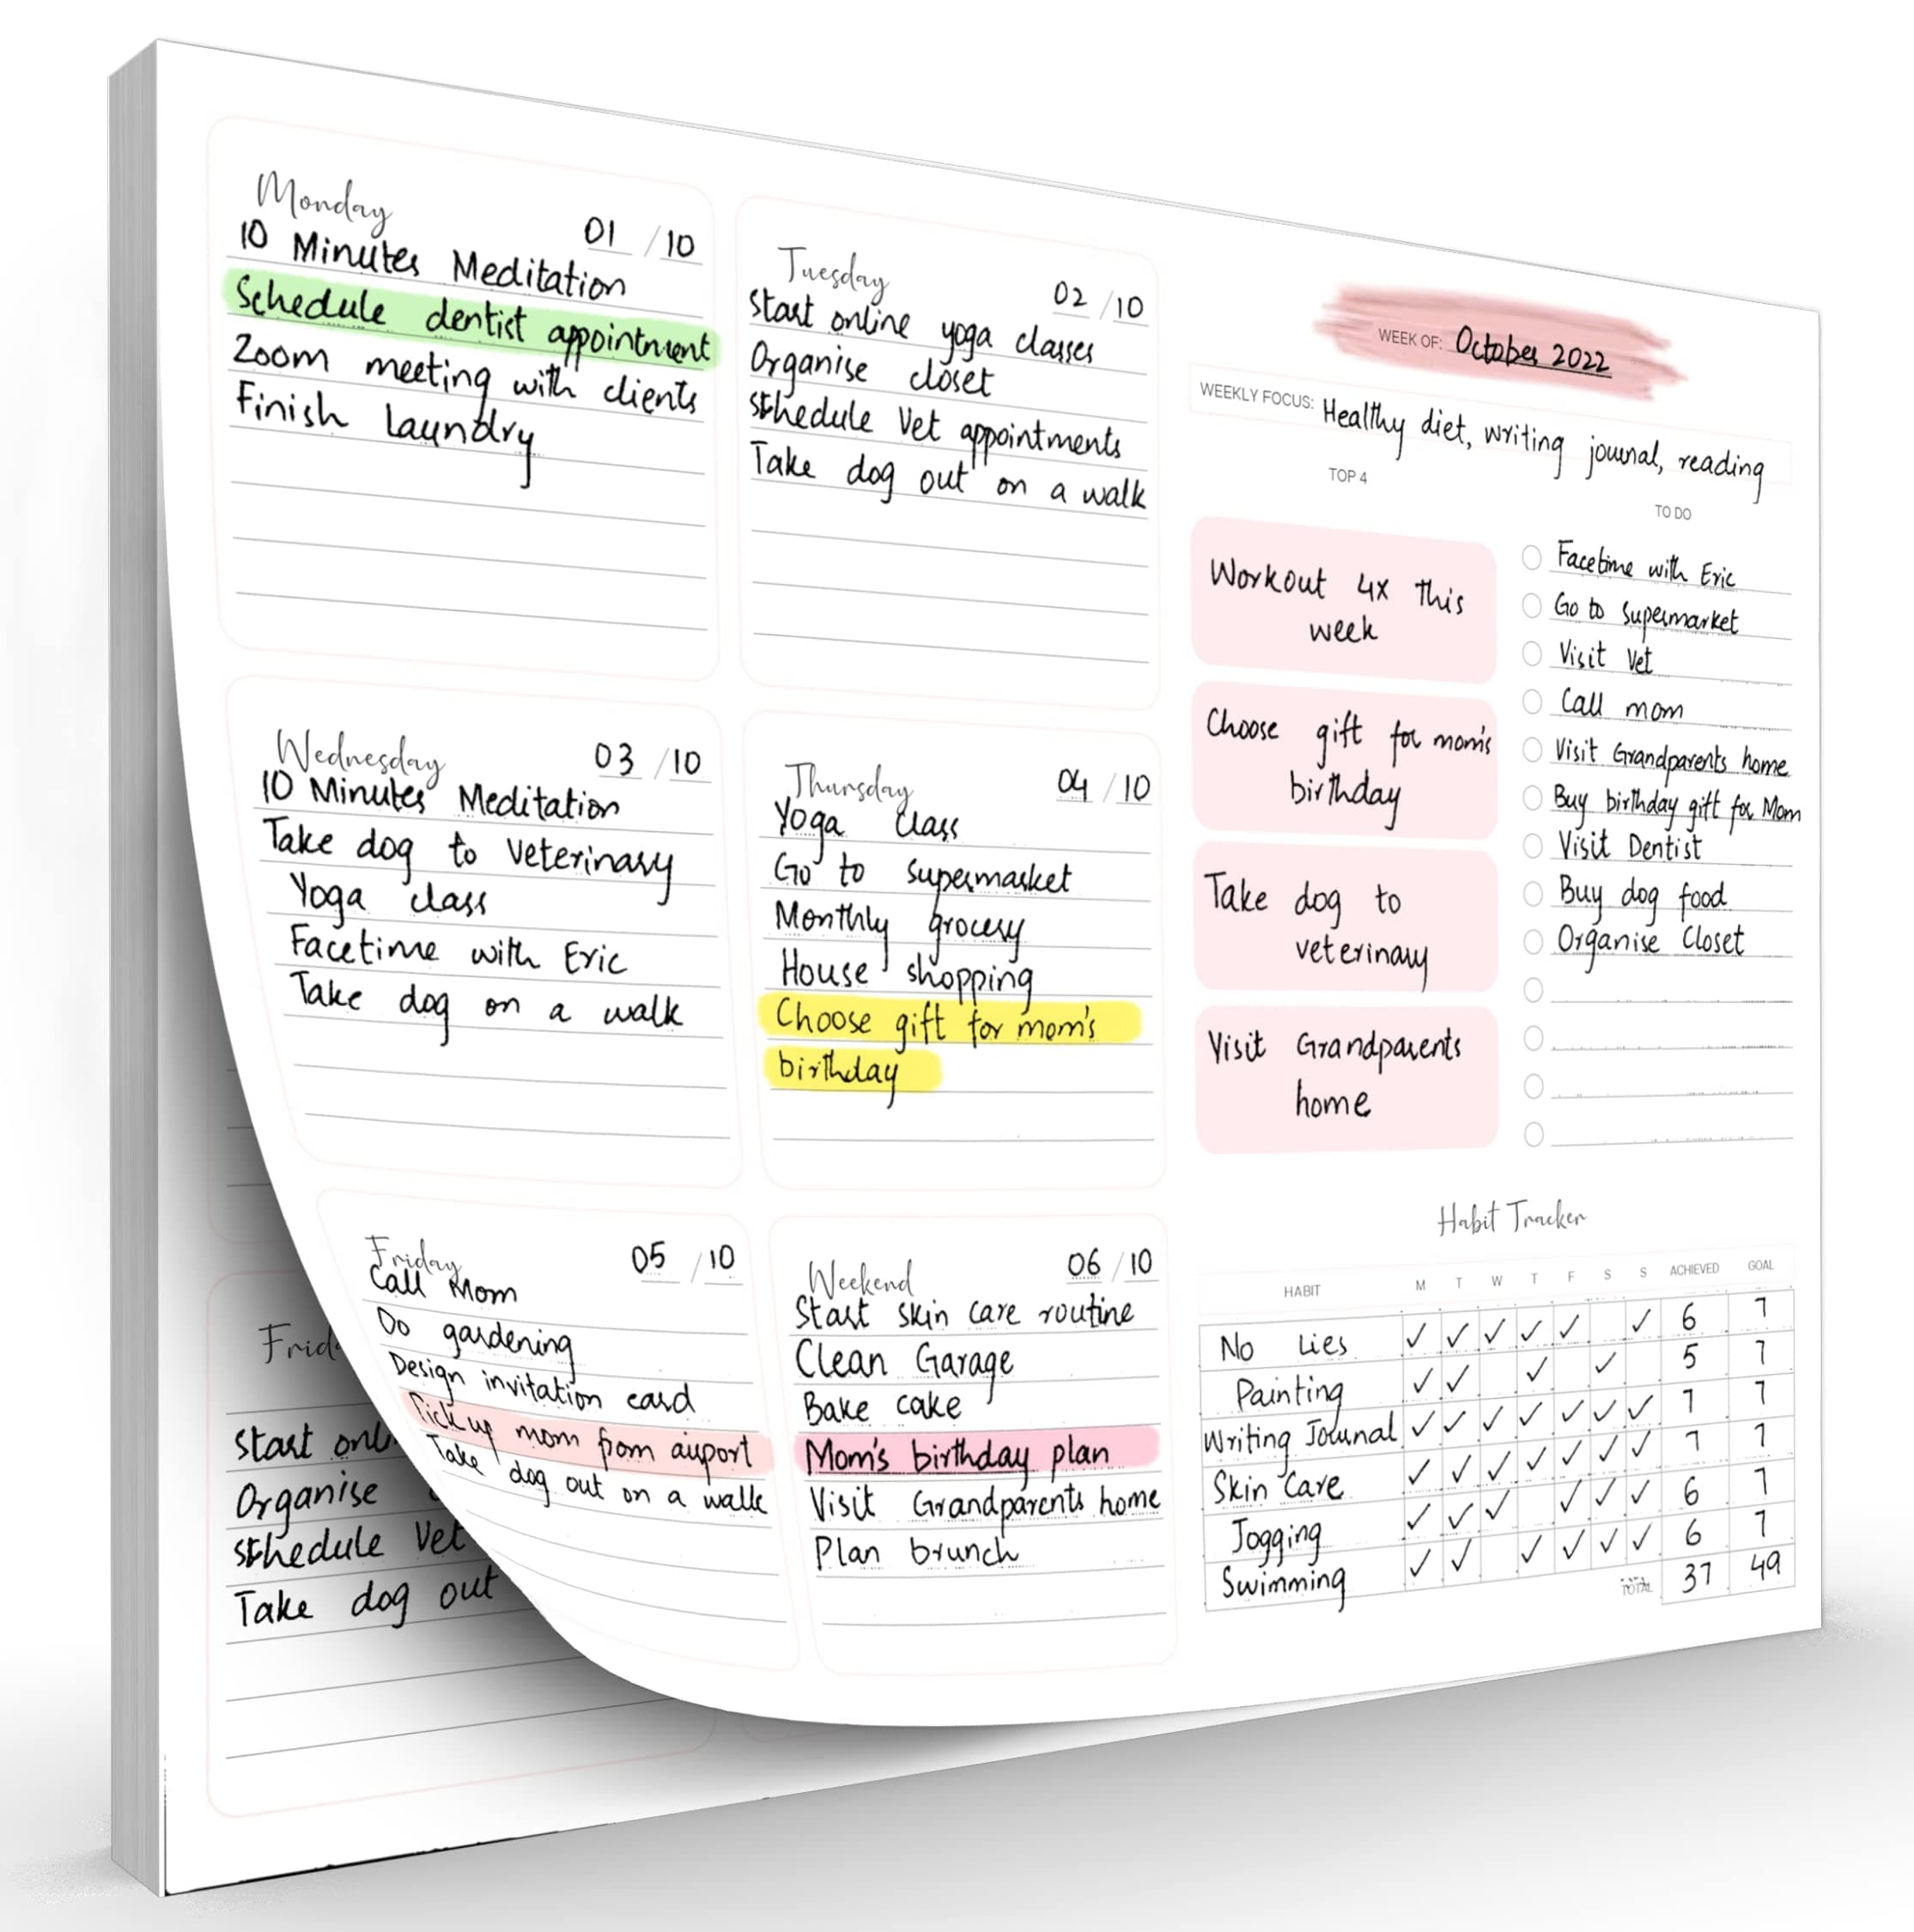 Monday
01 / 10
10 Minutes Meditation
Schedule dentist appointment
Zoom meeting with clients
Finish Laundry
Tuesday
02 / 10
Start online yoga classes
Organise closet
Schedule Vet appointments
Take dog out on a walk
Wednesday
03 / 10
10 Minutes Meditation
Take dog to Veterinary
Yoga class
Facetime with Eric
Take dog on a walk
Thursday
04 / 10
Yoga class
Go to Supermarket
Monthly grocery
House shopping
Choose gift for mom's
birthday
Friday
05 / 10
Call Mom
Do gardening
Design invitation card
Pick up mom from airport
Take dog out on a walk
Weekend
06 / 10
Start skin care routine
Clean Garage
Bake cake
Mom's birthday plan
Visit Grandparents home
Plan brunch
WEEK OF: October 2022
WEEKLY FOCUS: Healthy diet, writing journal, reading
TOP 4
Workout 4x this
week
Choose gift for mom's
birthday
Take dog to
veterinary
Visit Grandparents
home
TO DO
Facetime with Eric
Go to Supermarket
Visit Vet
Call mom
Visit Grandparents home
Buy birthday gift for Mom
Visit Dentist
Buy dog food
Organise Closet
Habit Tracker
HABIT M T W T F S S ACHIEVED GOAL
No Lies ✓ ✓ ✓ ✓ ✓ ✓ 6 7
Painting ✓ ✓ ✓ ✓ 5 7
Writing Journal ✓ ✓ ✓ ✓ ✓ ✓ ✓ 7 7
Skin Care ✓ ✓ ✓ ✓ ✓ ✓ ✓ 7 7
Jogging ✓ ✓ ✓ ✓ ✓ ✓ 6 7
Swimming ✓ ✓ ✓ ✓ ✓ ✓ 6 7
TOTAL 37 49
Frid
Start onl
Organise
Schedule Vet
Take dog out